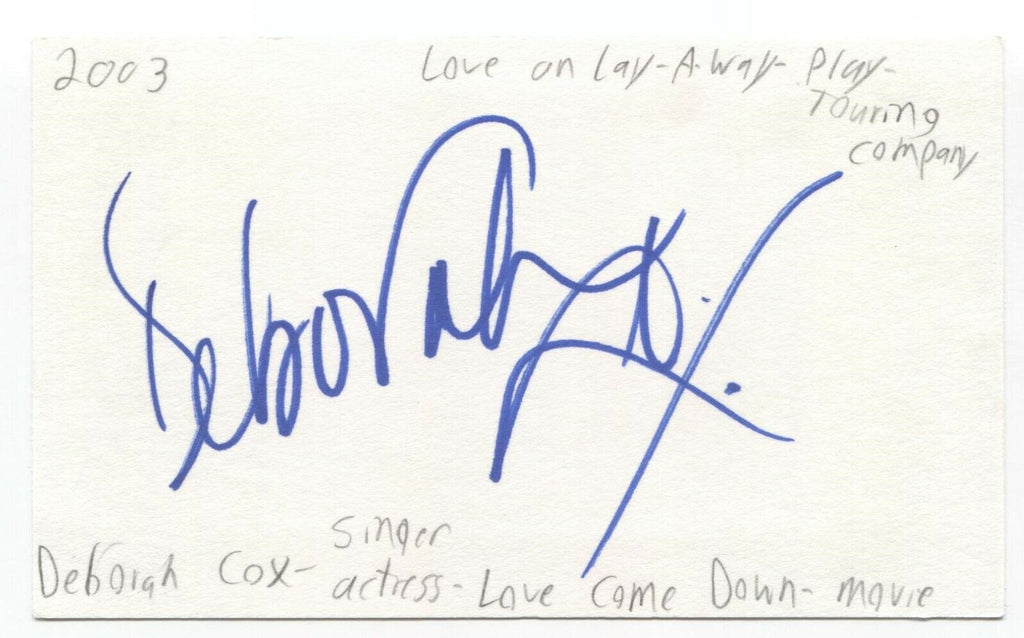 2003
Love on Lay-A-Way- Play-
Touring
company
Deborah Cox
Deborah Cox- singer
actress- Love Come Down- movie